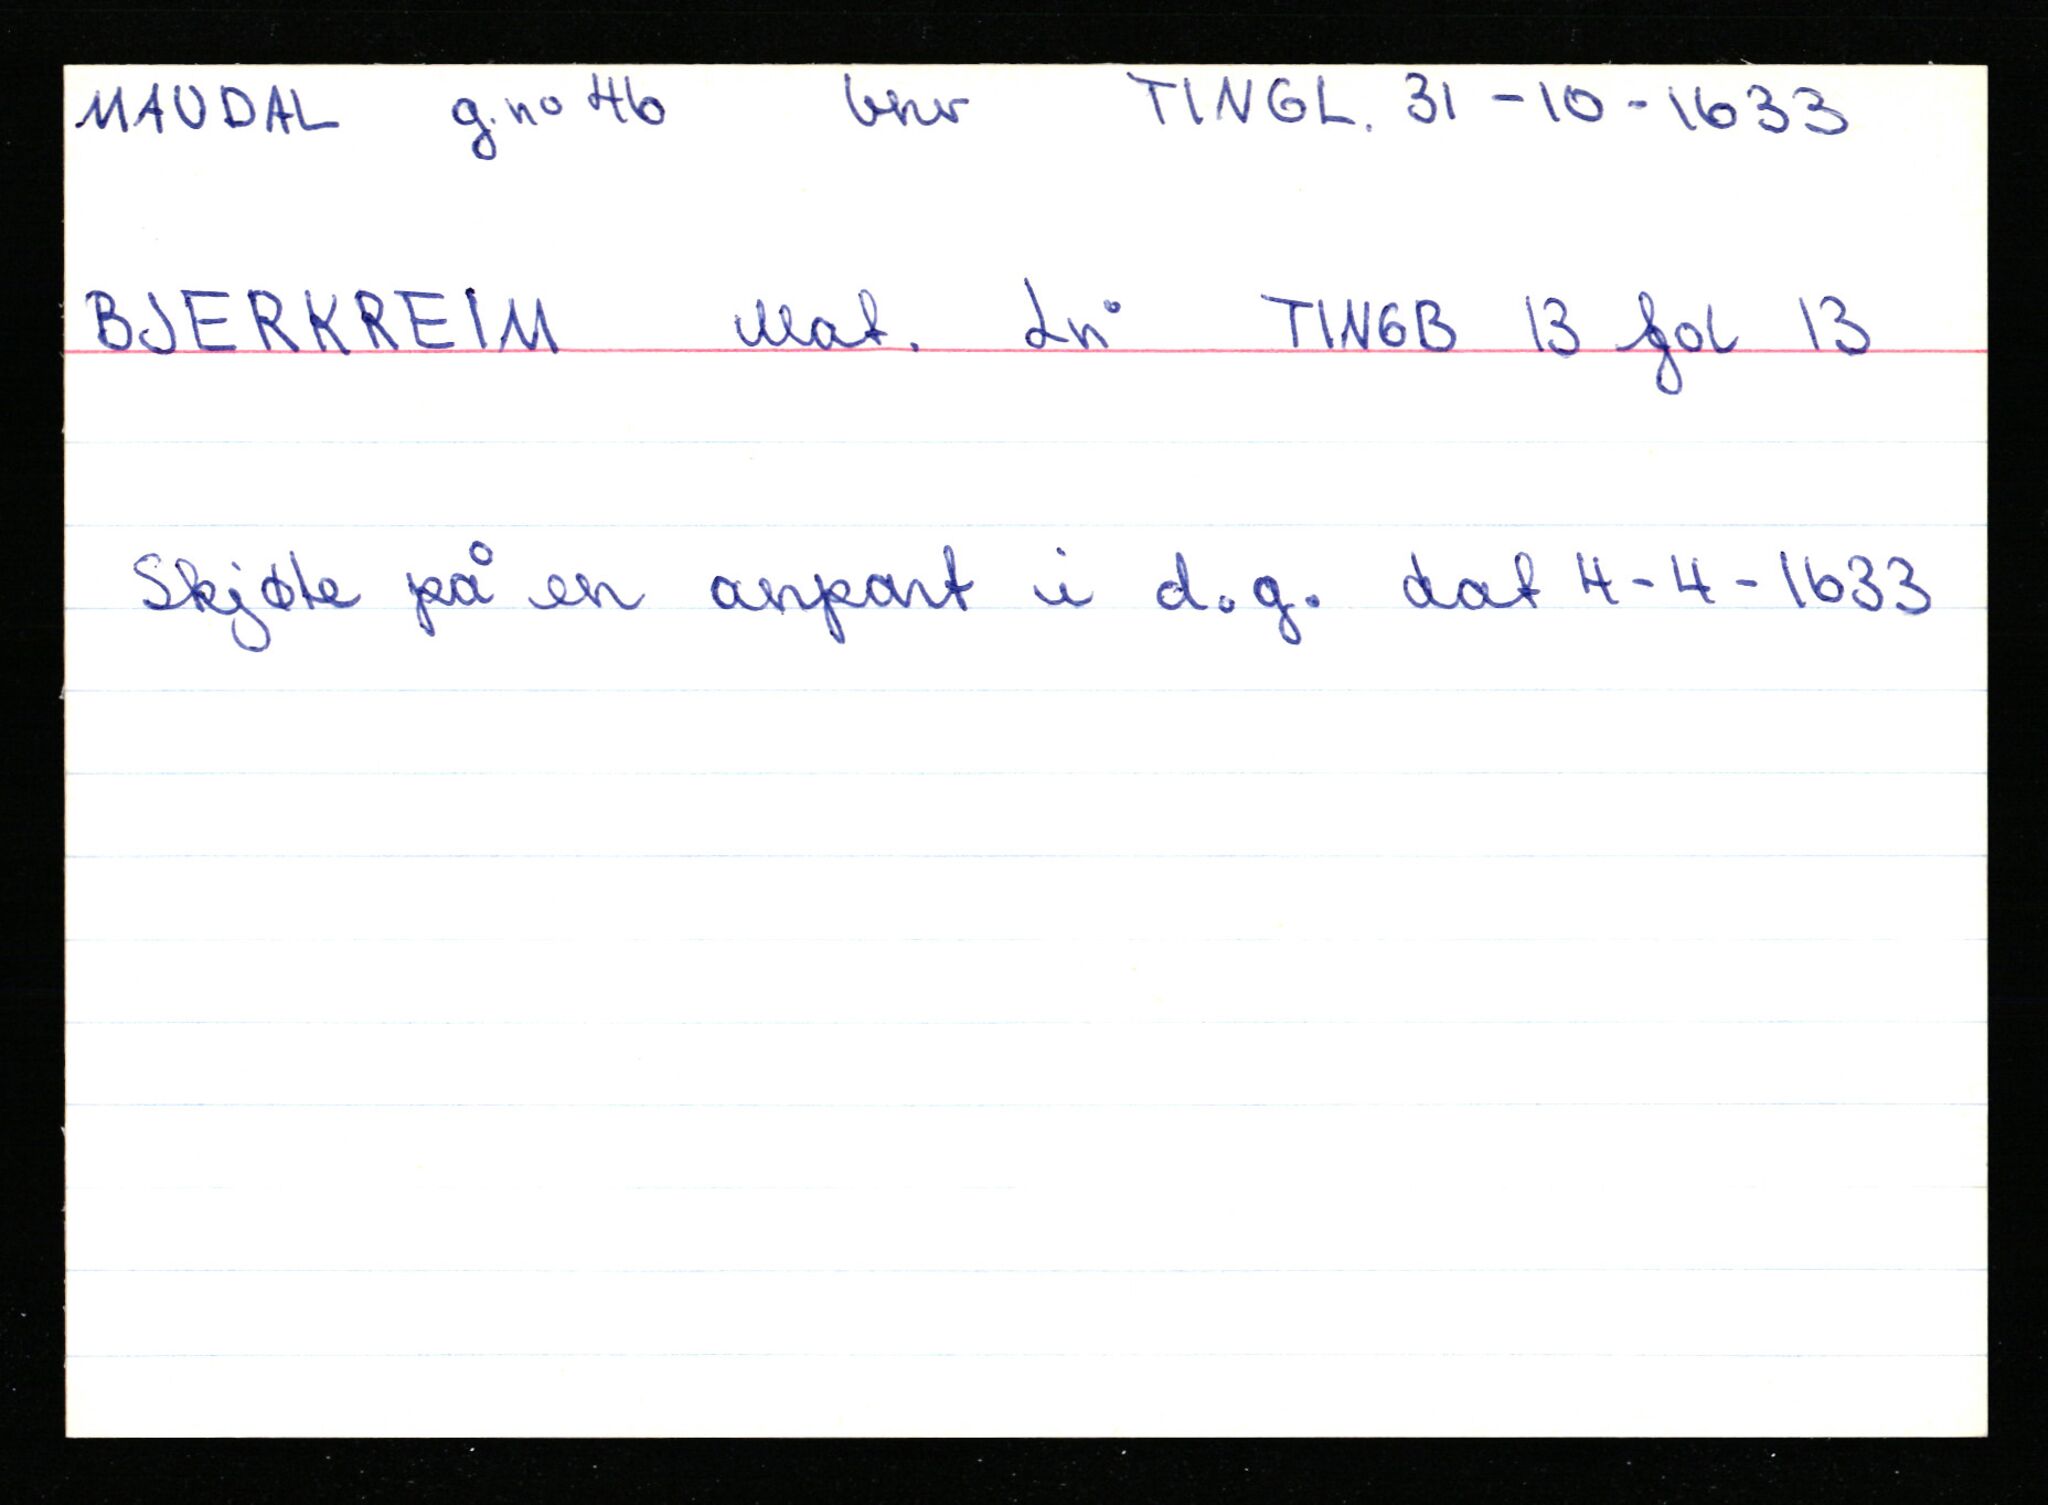 MAUDAL g.no 46 bnr TINGL. 31-10-1633
BJERKREIM Mat. Lno TINGB 13 fol 13
Skjøte på en anpart i d.g. dat 4-4-1633